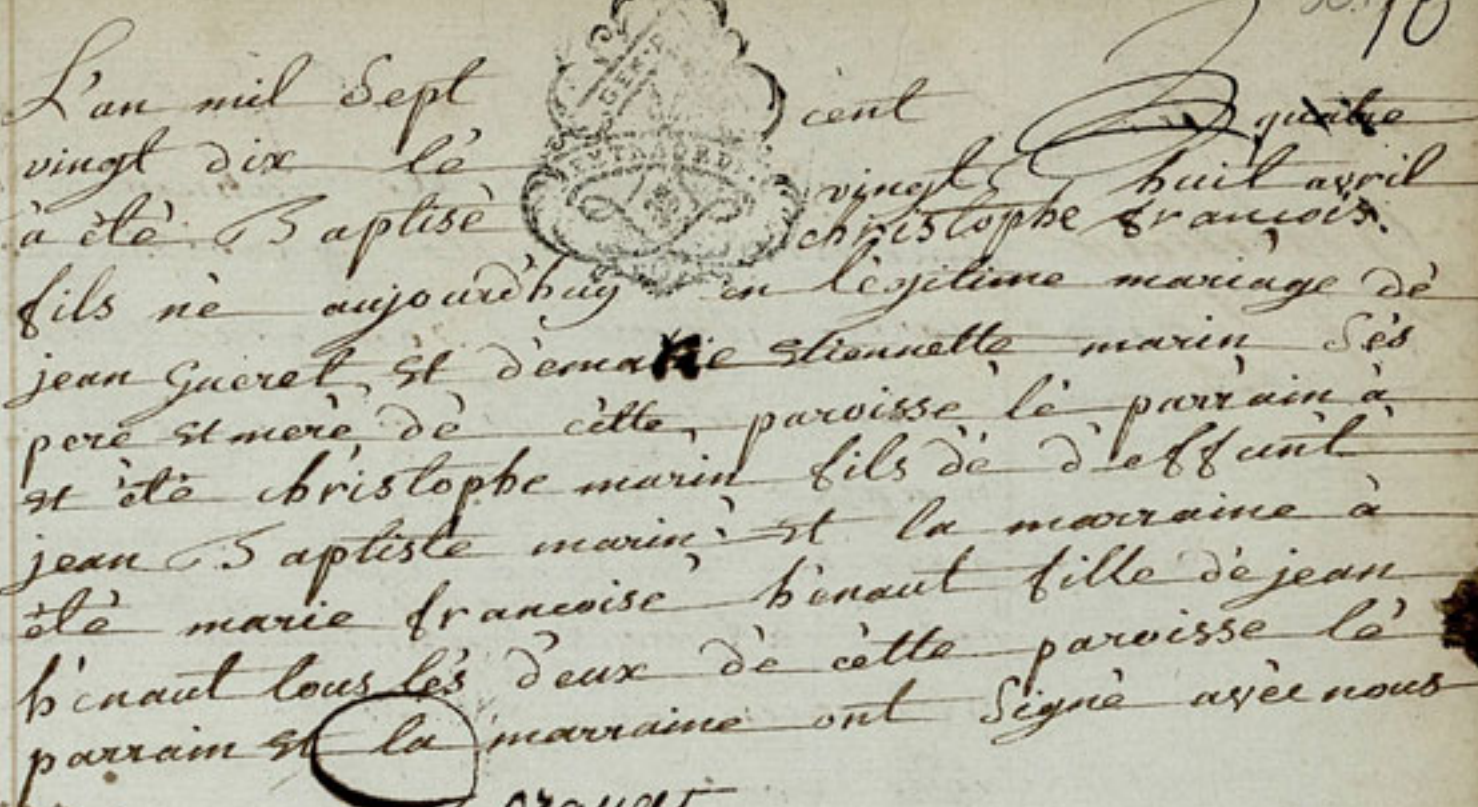 10
L'an mil Sept cent quatre
vingt dix lè vingt huit avril
à ètè Baptisè christophe francois
fils nè aujourd'huy en lègitime mariage dè
jean Gueret et dè marie etiennette marin Sès
pere et merè dè cètte paroisse lè parrain à
et ètè christophe marin fils dè deffunt
jean Baptiste marin et la marraine à
ètè marie francoise hènaut fille dè jean
hènaut tous lès deux dè cètte paroisse lè
parrain et la marraine ont Signè avèc nous